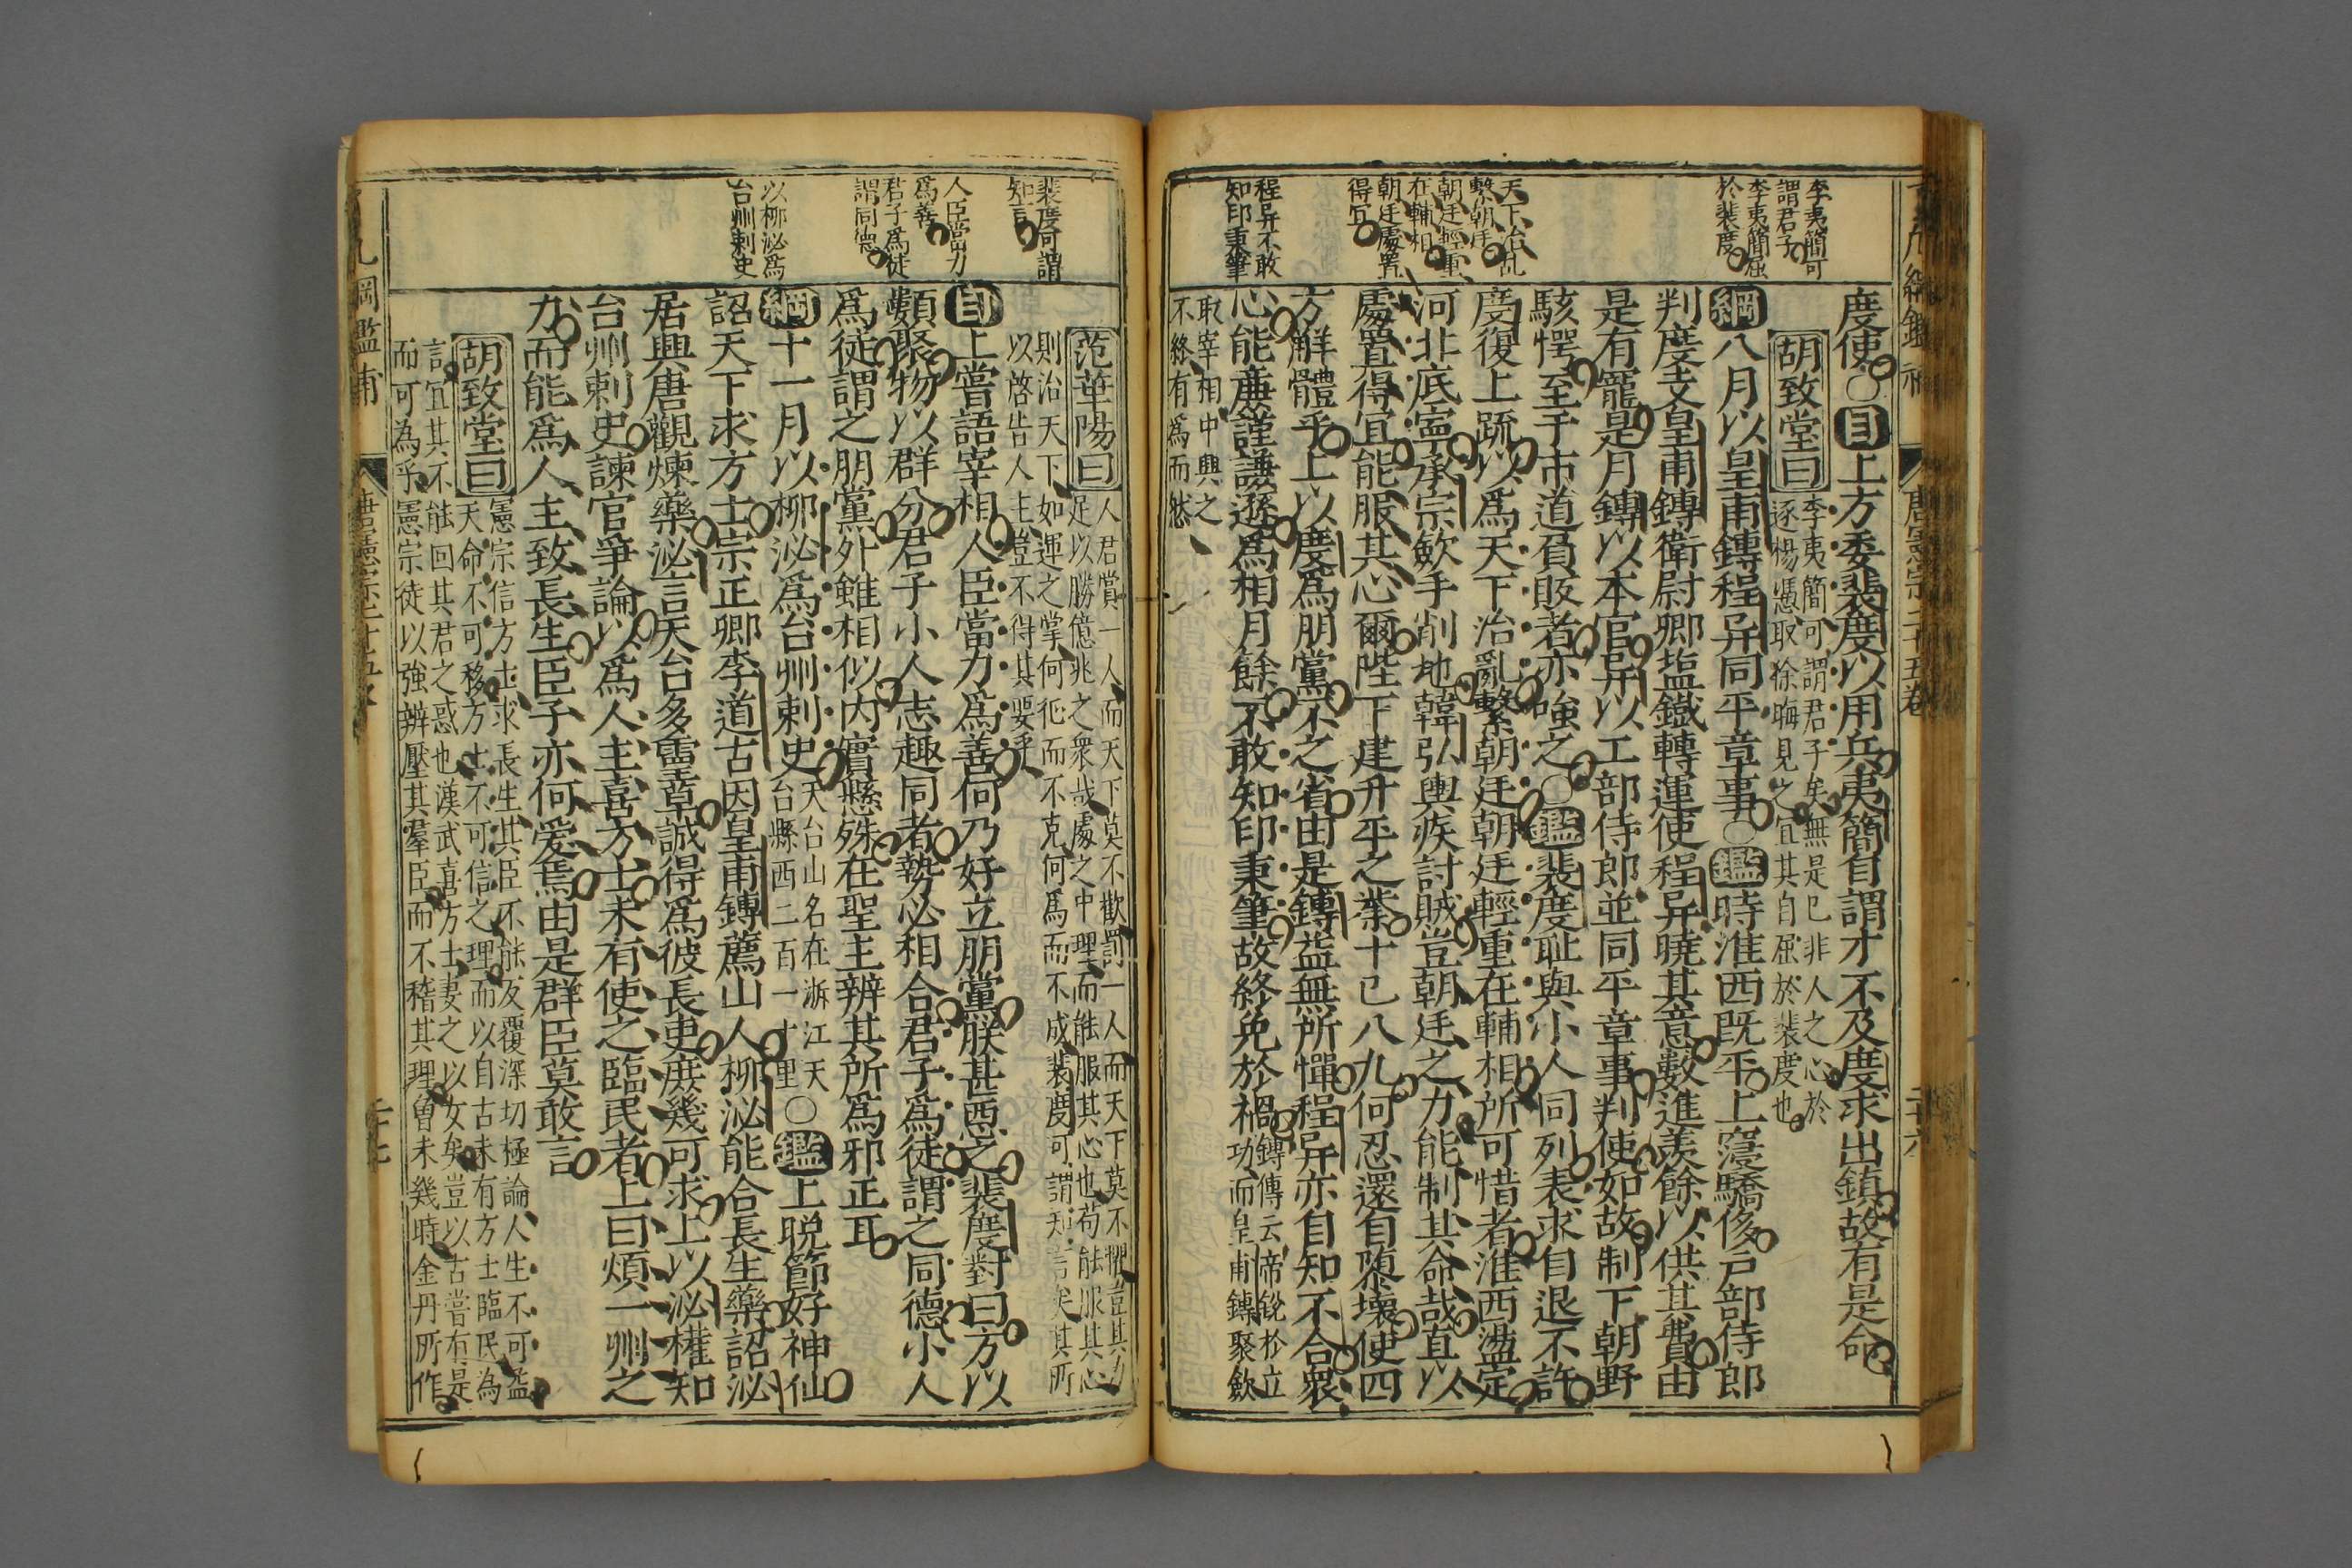 李夷簡可
謂君子
李夷簡屈
於裴度
天下治乱
繫朝廷
朝廷輕重
在輔相
朝廷處置
得宜
程异不敢
知印秉筆
度使○目上方委裴度以用兵夷簡自謂才不及度求出鎮故有是命
胡致堂曰
李夷簡可謂君子矣無是已非人之心於
逐楊憑取徐晦見之宜其自屈於裴度也
綱八月以皇甫鎛程异同平章事○鑑時淮西既平上寖驕侈戸部侍郎
判度支皇甫鎛衛尉卿塩鐵轉運使程异曉其意數進羨餘以供其費由
是有寵是月鎛以本官异以工部侍郎並同平章事判使如故制下朝野
駭愕至于市道負販者亦嗤之○鑑裴度耻與小人同列表求自退不許
度復上疏以爲天下治亂繫朝廷朝廷輕重在輔相所可惜者淮西盪定
河北底寧承宗歛手削地韓弘輿疾討賊豈朝廷之力能制其命哉直以
處置得宜能服其心爾陛下建升平之業十已八九何忍還自隳壞使四
方解體乎上以度爲朋黨不之省由是鎛益無所憚程异亦自知不合衆
心能廉謹謙遜爲相月餘不敢知印秉筆故終免於禍
鎛傳云帝銳於立
功而皇甫鎛聚歛
取宰相中興之
不終有爲而然
唐憲宗二十五卷
二十六
裴度可謂
知言
人臣當力
爲善
君子爲徒
謂同德
以柳泌爲
台州刺史
范華陽曰
人君賞一人而天下莫不歡罰一人而天下莫不懼豈其力
足以勝億兆之衆哉處之中理而能服其心也苟能服其心
則治天下如運之掌何征而不克何爲而不成裴度可謂知言矣其所
以啓告人主豈不得其要乎
目上嘗語宰相人臣當力爲善何乃好立朋黨朕甚惡之裴度對曰方以
類聚物以群分君子小人志趣同者勢必相合君子爲徒謂之同德小人
爲徒謂之朋黨外雖相似内實懸殊在聖主辨其所爲邪正耳
綱十一月以柳泌爲台州刺史
天台山名在浙江天
台縣西二百一十里
○鑑上晚節好神仙
詔天下求方士宗正卿李道古因皇甫鎛薦山人柳泌能合長生藥詔泌
居興唐觀煉藥泌言天台多靈草誠得爲彼長吏庶幾可求上以泌權知
台州刺史諫官爭論以爲人主喜方士未有使之臨民者上曰煩一州之
力而能爲人主致長生臣子亦何爱焉由是群臣莫敢言
胡致堂曰
憲宗信方士求長生其臣不能反覆深切極論人生不可益
天命不可移方士不可信之理而以自古未有方士臨民為
言宜其不能回其君之惑也漢武喜方士妻之以女矣豈以古嘗有是
而可為乎憲宗徒以強辨壓其羣臣而不稽其理曾未幾時金丹所作